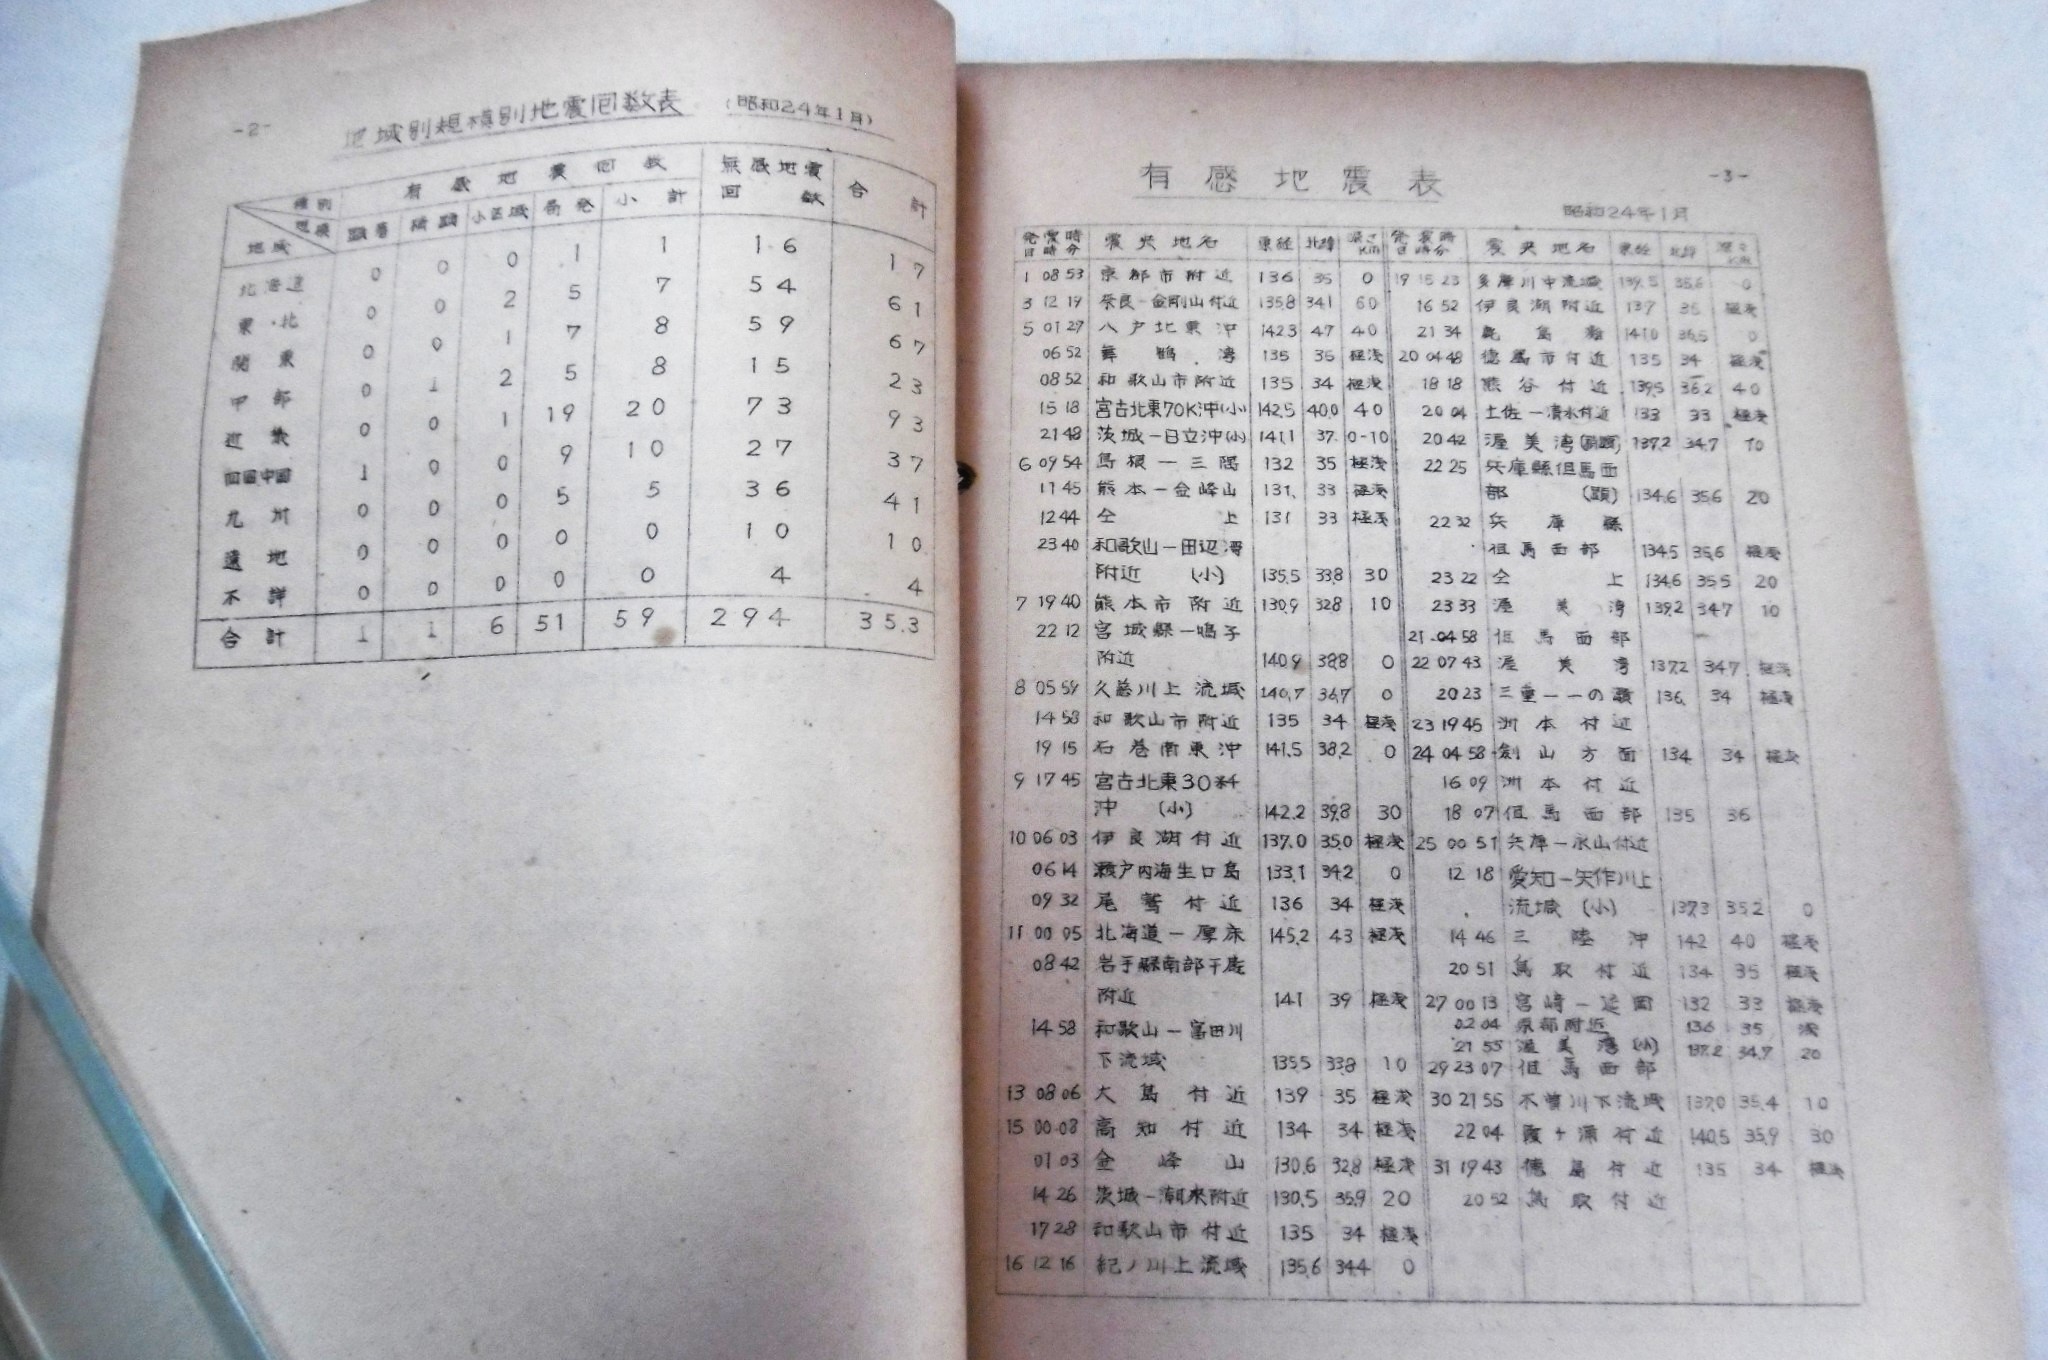 -2-
地域別規模別地震回数表 (昭和24年1月)
種別 有感地震回数 無感地震 合計
規模 顕著 稍顕 小区域 局発 小計 回数
地域
北海道 0 0 0 1 1 16 17
東北 0 0 2 5 7 54 61
関東 0 0 1 7 8 59 67
中部 0 1 2 5 8 15 23
近畿 0 0 1 19 20 73 93
四国中国 1 0 0 9 10 27 37
九州 0 0 0 5 5 36 41
遠地 0 0 0 0 0 10 10
不詳 0 0 0 0 0 4 4
合計 1 1 6 51 59 294 353
有感地震表
-3-
昭和24年1月
発震時 震央地名 東経 北緯 深さ
日時分 km
1 08 53 京都市附近 136 35 0
3 12 19 奈良-金剛山付近 135.8 34.1 60
5 01 27 八戸北東沖 142.3 47 40
06 52 舞鶴湾 135 35 極浅
08 52 和歌山市附近 135 34 極浅
15 18 宮古北東70K沖(小) 142.5 40.0 40
21 48 茨城-日立沖(小) 141.1 37. 0-10
6 09 54 島根-三隅 132 35 極浅
11 45 熊本-金峰山 131. 33 極浅
12 44 仝上 131 33 極浅
23 40 和歌山-田辺湾
附近 (小) 135.5 33.8 30
7 19 40 熊本市附近 130.9 32.8 10
22 12 宮城縣-鳴子
附近 140.9 38.8 0
8 05 59 久慈川上流域 140.7 36.7 0
14 58 和歌山市附近 135 34 極浅
19 15 石巻南東沖 141.5 38.2 0
9 17 45 宮古北東30粁
沖 (小) 142.2 39.8 30
10 06 03 伊良湖付近 137.0 35.0 極浅
06 14 瀬戸内海生口島 133.1 34.2 0
09 32 尾鷲付近 136 34 極浅
11 00 05 北海道-厚床 145.2 43 極浅
08 42 岩手縣南部千厩
附近 141 39 極浅
14 58 和歌山-富田川
下流域 135.5 33.8 10
13 08 06 大島付近 139 35 極浅
15 00 08 高知付近 134 34 極浅
01 03 金峰山 130.6 32.8 極浅
14 26 茨城-潮来附近 130.5 35.9 20
17 28 和歌山市付近 135 34 極浅
16 12 16 紀ノ川上流域 135.6 34.4 0
発震時 震央地名 東経 北緯 深さ
日時分 km
19 15 23 多摩川中流域 139.5 35.6 0
16 52 伊良湖附近 137 35 極浅
21 34 鹿島灘 141.0 36.5 0
20 04 48 徳島市付近 135 34 極浅
18 18 熊谷付近 139.5 36.2 40
20 04 土佐-清水付近 133 33 極浅
20 42 渥美湾(稍顕) 137.2 34.7 10
22 25 兵庫縣但馬西
部 (顕) 134.6 35.6 20
22 32 兵庫縣
但馬西部 134.5 35.6 極浅
23 22 仝上 134.6 35.5 20
23 33 渥美湾 137.2 34.7 10
21 04 58 但馬西部
22 07 43 渥美湾 137.2 34.7 極浅
20 23 三重-一の瀬 136. 34 極浅
23 19 45 洲本付近
24 04 58 剣山方面 134 34 極浅
16 09 洲本付近
18 07 但馬西部 135 36
25 00 51 兵庫-氷山付近
12 18 愛知-矢作川上
流域 (小) 137.3 35.2 0
14 46 三陸沖 142 40 極浅
20 51 鳥取付近 134 35 極浅
27 00 13 宮崎-延岡 132 33 極浅
02 04 京都附近 136 35 浅
21 55 渥美湾(小) 137.2 34.7 20
29 23 07 但馬西部
30 21 55 木曽川下流域 137.0 35.4 10
22 04 霞ヶ浦付近 140.5 35.9 30
31 19 43 徳島付近 135 34 極浅
20 52 鳥取付近